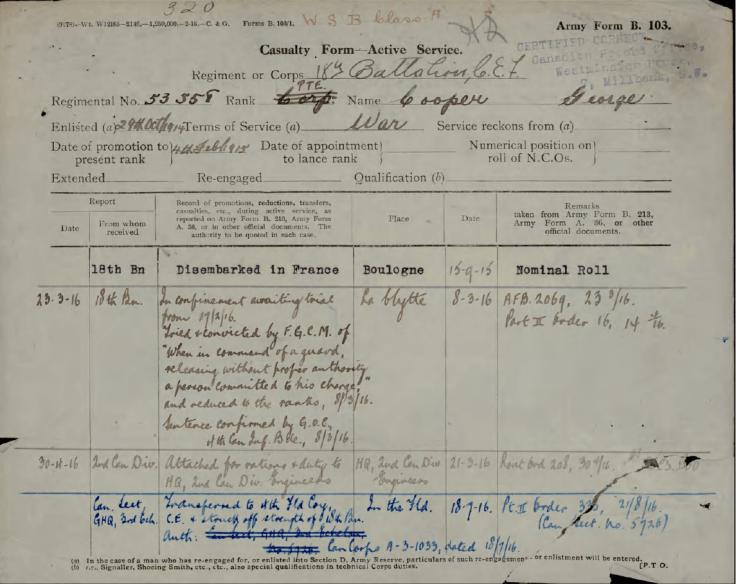 320
(9178)–Wt. W12185–2146.–1,250,000.–2-16.–C. & G. Forms B. 103/1. W S B Class A
Army Form B. 103.
CERTIFIED CORRECT
Canadian Record Office,
Westminster House,
7, Millbank, S.W.
Casualty Form—Active Service.
Regiment or Corps 18th Battalion, C.E.F
PTE.
Regimental No. 53358 Rank Corp. Name Cooper George
Enlisted (a) 29th Oct 1914 Terms of Service (a) War Service reckons from (a)
Date of promotion to present rank } 4th Feb 1915 Date of appointment to lance rank } Numerical position on roll of N.C.Os. }
Extended Re-engaged Qualification (b)
Report
Date
From whom received
Record of promotions, reductions, transfers, casualties, etc., during active service, as reported on Army Form B. 213, Army Form A. 36, or in other official documents. The authority to be quoted in each case.
Place
Date
Remarks
taken from Army Form B. 213, Army Form A. 36, or other official documents.
18th Bn Disembarked in France Boulogne 15-9-15 Nominal Roll
23-3-16 18th Bn. In confinement awaiting trial La Clytte 8-3-16 AFB. 2069, 23/3/16.
from 17/2/16. Part II Order 16, 14
Tried & convicted by F.G.C.M. of
"When in command of a guard,
releasing without proper authority
a person committed to his charge,"
and reduced to the ranks, 8/3/16.
Sentence confirmed by G.O.C.,
4th Can Inf. Bde., 8/3/16.
30-4-16 2nd Can Div. Attached for rations & duty to HQ, 2nd Can Div 21-3-16
HQ, 2nd Can Div. Engineers Engineers
Can. Sect, Transferred to 4th Fld Coy, In the Fld. 18-7-16. Pt. II Order 21/8/16.
GHQ, 3rd Ech. C.E. & struck off strength of 18th Bn. (Can Sect. No. 5726)
Auth: Can Sect, GHQ, 3rd Echelon,
No. 5726 Can Corps A-3-1033, dated 18/7/16.
(a) In the case of a man who has re-engaged for, or enlisted into Section D, Army Reserve, particulars of such re-engagement or enlistment will be entered.
(b) i.e., Signaller, Shoeing Smith, etc., etc., also special qualifications in technical Corps duties. [P.T O.